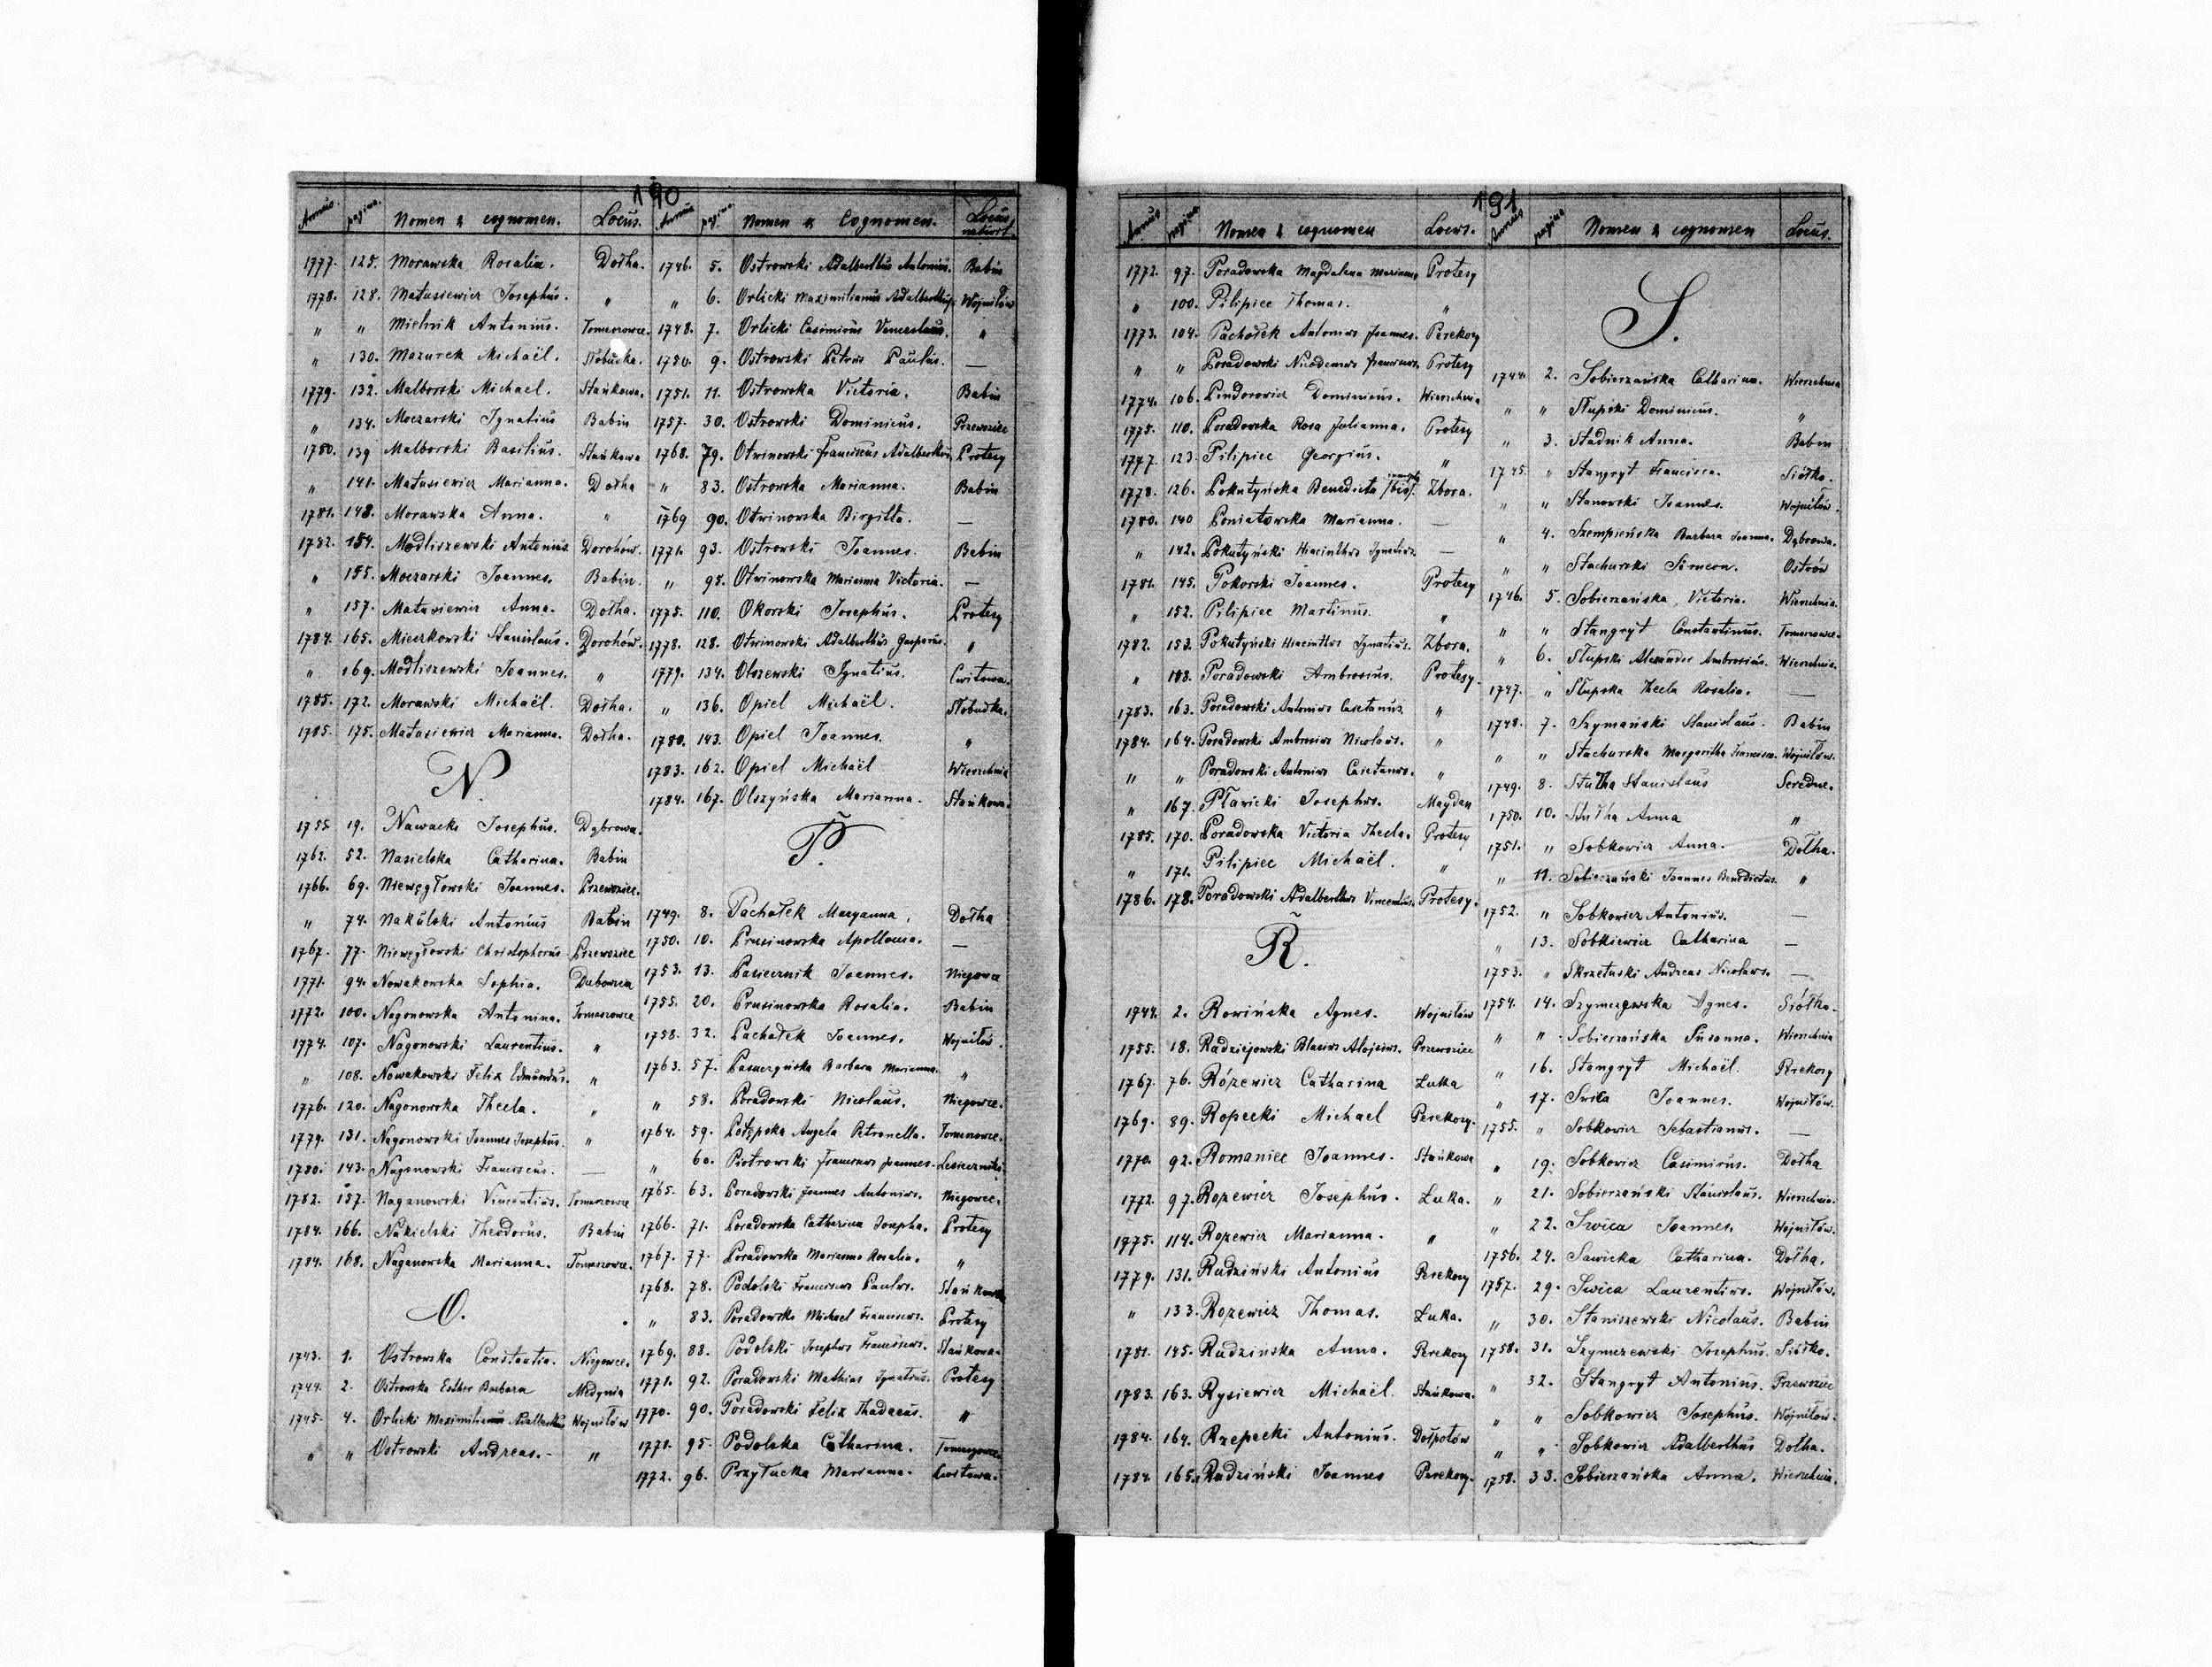 190
Annus. pagina. Nomen & cognomen. Locus.
1777. 125. Morawska Rosalia. Dołha.
1778. 128. Matusiewicz Josephus. "
" " Mielnik Antonius. Tomaszowce.
" 130. Mazurek Michaël. Słobudka.
1779. 132. Malborski Michael. Stańkowa.
" 134. Moczarski Ignatius Babin
1780. 139 Malborski Basilius. Stańkowa
" 141. Matusiewicz Marianna. Dołha
1781. 148. Morawska Anna. "
1782. 154. Modliszewski Antonius. Dorohów.
" 155. Moczarski Joannes. Babin.
" 157. Matusiewicz Anna. Dołha.
1784. 165. Mieczkowski Stanislaus. Dorohów.
" 169. Modliszewski Joannes. "
1785. 172. Morawski Michaël. Dołha.
1785. 175. Matusiewicz Marianna. Dołha.
N.
1755 19. Nawacki Josephus. Dąbrowa.
1762. 52. Nasielska Catharina. Babin
1766. 69. Niewęgłowski Joannes. Przewoziec.
" 74. Nakulski Antonius Babin
1767. 77. Niewęgłowski Christophorus Przewoziec
1771. 94. Nowakowska Sophia. Dubowica
1772. 100. Nagonowska Antonina. Tomaszowce
1774. 107. Nagonowski Laurentius. "
" 108. Nowakowski Felix Edmundus. "
1776. 120. Nagonowska Thecla. "
1779. 131. Nagonowski Joannes Josephus. "
1780. 143. Nagonowski Franciscus. —
1782. 157. Naganowski Vincentius. Tomaszowce
1784. 166. Nakielski Theodorus. Babin
1784. 168. Naganowska Marianna. Tomaszowce.
O.
1743. 1. Ostrowska Constantia. Niegowce.
1744. 2. Ostrowska Esther Barbara Medynia
1745. 4. Orlicki Maximilianus Adalbertus Wojniłów
" " Ostrowski Andreas. "
Annus pag. Nomen & Cognomen. Locus nativit.
1746. 5. Ostrowski Adalberthus Antonius. Babin
" 6. Orlicki Maximilianus Adalberthus. Wojniłów
1748. 7. Orlicki Casimirus Venceslaus. "
1750. 9. Ostrowski Petrus Paulus. —
1751. 11. Ostrowska Victoria. Babin
1757. 30. Ostrowski Dominicus. Przewoziec
1768. 79. Otwinowski Franciscus Adalbertus. Protesy
" 83. Ostrowska Marianna. Babin
1769 90. Otwinowska Birgitta. —
1771. 93. Ostrowski Joannes. Babin
" 95. Otwinowska Marianna Victoria. —
1775. 110. Okorski Josephus. Protesy
1778. 128. Otwinowski Adalberthus Gasparus. "
1779. 134. Olszewski Ignatius. Cwitowa.
" 136. Opiel Michaël. Słobudka.
1780. 143. Opiel Joannes. "
1783. 162. Opiel Michaël Wierzchnia
1784. 167. Olszyńska Marianna. Stańkowa.
P.
1749. 8. Pachołek Maryanna, Dołha
1750. 10. Prusinowska Apollonia. —
1753. 13. Pasiecznik Joannes. Niegowce
1755. 20. Prusinowska Rosalia. Babin
1758. 32. Pachołek Joannes. Wojniłów.
1763. 57. Barbara Marianna. "
" 58. Poradowski Nicolaus. Niegowce.
1764. 59. Angela Petronella. Tomaszowce.
" 60. Piotrowski Franciscus Joannes.
1765. 63. Poradowski Joannes Antonius. Niegowce.
1766. 71. Poradowska Catharina Josepha. Protesy
1767. 77. Poradowska Marianna Rosalia. "
1768. 78. Podolski Franciscus Paulus. Stańkowa
" 83. Poradowski Michael Franciscus. Protesy
1769. 88. Podolski Josephus Franciscus. Stańkowa.
1771. 92. Poradowski Mathias Ignatius. Protesy
1770. 90. Poradowski Felix Thadaeus. "
1771. 95. Podolska Catharina. Tomaszowce
1772. 96. Przyłucka Marianna.
191
Annus pagina Nomen & cognomen Locus.
1772. 97. Poradowska Magdalena Marianna Protesy
" 100. Pilipiec Thomas. "
1773. 104. Pachołek Antonius Joannes. Perekosy
" " Poradowski Nicodemus Franciscus. Protesy
1774. 106. Dominicus. Wierzchnia
1775. 110. Poradowska Rosa Julianna. Protesy
1777. 123. Pilipiec Georgius. "
1778. 126. Pokutyńska Benedicta (bis). Zbora.
1780. 140 Poniatowska Marianna. —
" 142. Pokutyński Hiacinthus Ignatius —
1781. 145. Pokorski Joannes. Protesy
" 152. Pilipiec Martinus. "
1782. 153. Pokutyński Hiacinthus Ignatius. Zbora.
" Poradowski Ambrosius. Protesy.
1783. 163. Poradowski Antonius Caietanus. "
1784. 164. Poradowski Ambrosius Nicolaus. "
" " Poradowski Antonius Caietanus. "
" 167. Pławicki Josephus. Maydan
1785. 170. Poradowska Victoria Thecla. Protesy
" 171. Pilipiec Michaël. "
1786. 178. Poradowski Adalberthus Vincentius. Protesy.
R.
1744. 2. Rowińska Agnes. Wojniłów
1755. 18. Radziejowski Blasius Alojsius. Przewoziec
1767. 76. Różewicz Catharina Łuka
1769. 89. Ropecki Michael Perekosy.
1770. 92. Romaniec Joannes. Stańkowa
1772. 97. Rozewicz Josephus. Łuka.
1775. 114. Rozewicz Marianna. "
1779. 131. Rudziński Antonius Perekosy
" 133. Rozewicz Thomas. Łuka.
1781. 145. Rudzinska Anna. Perekosy
1783. 163. Rysiewicz Michaël. Stańkowa.
1784. 164. Rzepecki Antonius. Dołpotów
1784 165. Rudziński Joannes Perekosy.
Annus pagina Nomen & cognomen Locus.
S.
1744. 2. Sobierzańska Catharina. Wierzchnia
" " Słupski Dominicus. "
" 3. Stadnik Anna. Babin
1745. " Stangryt Francisca. Siółko.
" " Stanowski Joannes. Wojniłów.
" 4. Szempieńska Barbara Joanna. Dąbrowa.
" " Stachurski Simeon. Ostrów
1746. 5. Sobierzańska Victoria. Wierzchnia.
" " Stangryt Constantinus. Tomaszowce.
" 6. Słupski Alexander Ambrosius. Wierzchnia.
1747. " Słupska Thecla Rosalia. —
1748. 7. Szymański Stanislaus. Babin
" " Stachurska Margaritha Francisca. Wojniłów.
1749. 8. Stanislaus Seredne.
1750. 10. Anna "
1751. " Sobkowicz Anna. Dołha.
" 11. Sobierzański Joannes Benedictus. "
1752. " Sobkowicz Antonius. —
" 13. Sobkiewicz Catharina —
1753. " Skrzetuski Andreas Nicolaus. —
1754. 14. Szymczewska Agnes. Siółko.
" " Sobierzańska Susanna. Wierzchnia
" 16. Stangryt Michaël. Perekosy
" 17. Swica Joannes. Wojniłów.
1755. " Sobkowicz Sebastianus. —
" 19. Sobkowicz Casimirus. Dołha
" 21. Sobierzański Stanislaus. Wierzchnia.
" 22. Swica Joannes. Wojniłów.
1756. 24. Sawicka Catharina. Dołha.
1757. 29. Swica Laurentius. Wojniłów.
" 30. Staniszewski Nicolaus. Babin
1758. 31. Szymczewski Josephus. Siółko.
" 32. Stangryt Antonius. Przewoziec
" " Sobkowicz Josephus. Wojniłów.
" " Sobkowicz Adalberthus Dołha.
1758. 33. Sobierzańska Anna. Wierzchnia.